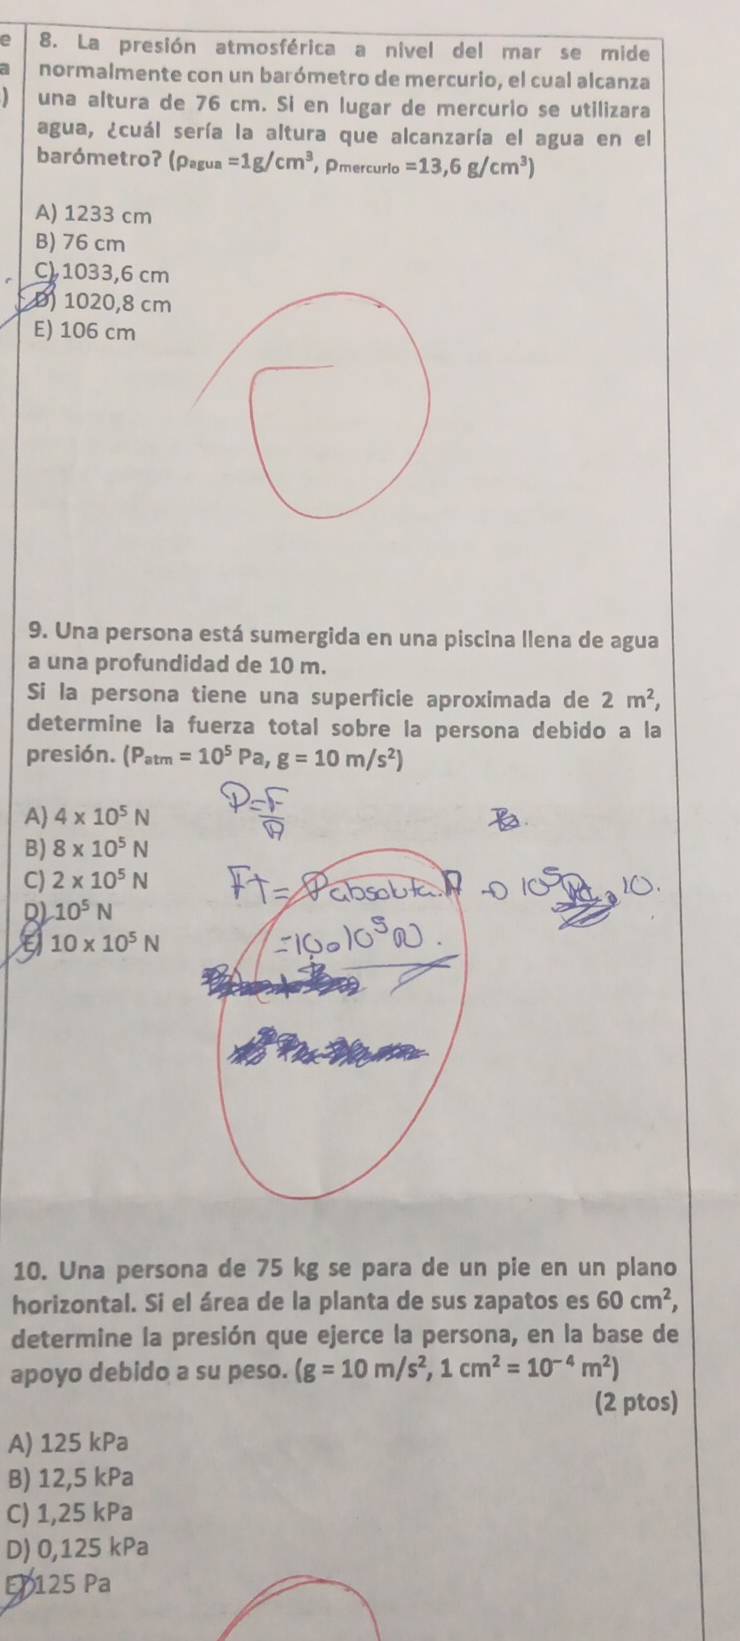 e
a
)
8. La presión atmosférica a nivel del mar se mide
normalmente con un barómetro de mercurio, el cual alcanza
una altura de 76 cm. Si en lugar de mercurio se utilizara
agua, ¿cuál sería la altura que alcanzaría el agua en el
barómetro? (ρagua =1g/cm³, ρmercurio =13,6 g/cm³)
A) 1233 cm
B) 76 cm
C) 1033,6 cm
D) 1020,8 cm
E) 106 cm
9. Una persona está sumergida en una piscina llena de agua
a una profundidad de 10 m.
Si la persona tiene una superficie aproximada de 2 m²,
determine la fuerza total sobre la persona debido a la
presión. (Patm = 10⁵ Pa, g = 10 m/s²)
A) 4 x 10⁵ N
B) 8 x 10⁵ N
C) 2 x 10⁵ N
D) 10⁵ N
E) 10 x 10⁵ N
P=F/A
FT = Pabsoluta.A → 10⁵ . 10.
=10.10⁵ N.
10. Una persona de 75 kg se para de un pie en un plano
horizontal. Si el área de la planta de sus zapatos es 60 cm²,
determine la presión que ejerce la persona, en la base de
apoyo debido a su peso. (g = 10 m/s², 1 cm² = 10⁻⁴ m²)
(2 ptos)
A) 125 kPa
B) 12,5 kPa
C) 1,25 kPa
D) 0,125 kPa
E) 125 Pa